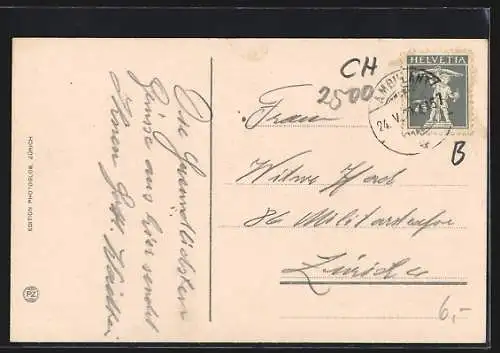 EDITION PHOTOGLOB, ZÜRICH
PZ
Die freundlichsten
Grüsse aus hier sendet
Ihnen
CH
2500
HELVETIA
AMBULANT
24. V.
B
Frau
Witwe
86 Militärstrasse
Zürich
6,-